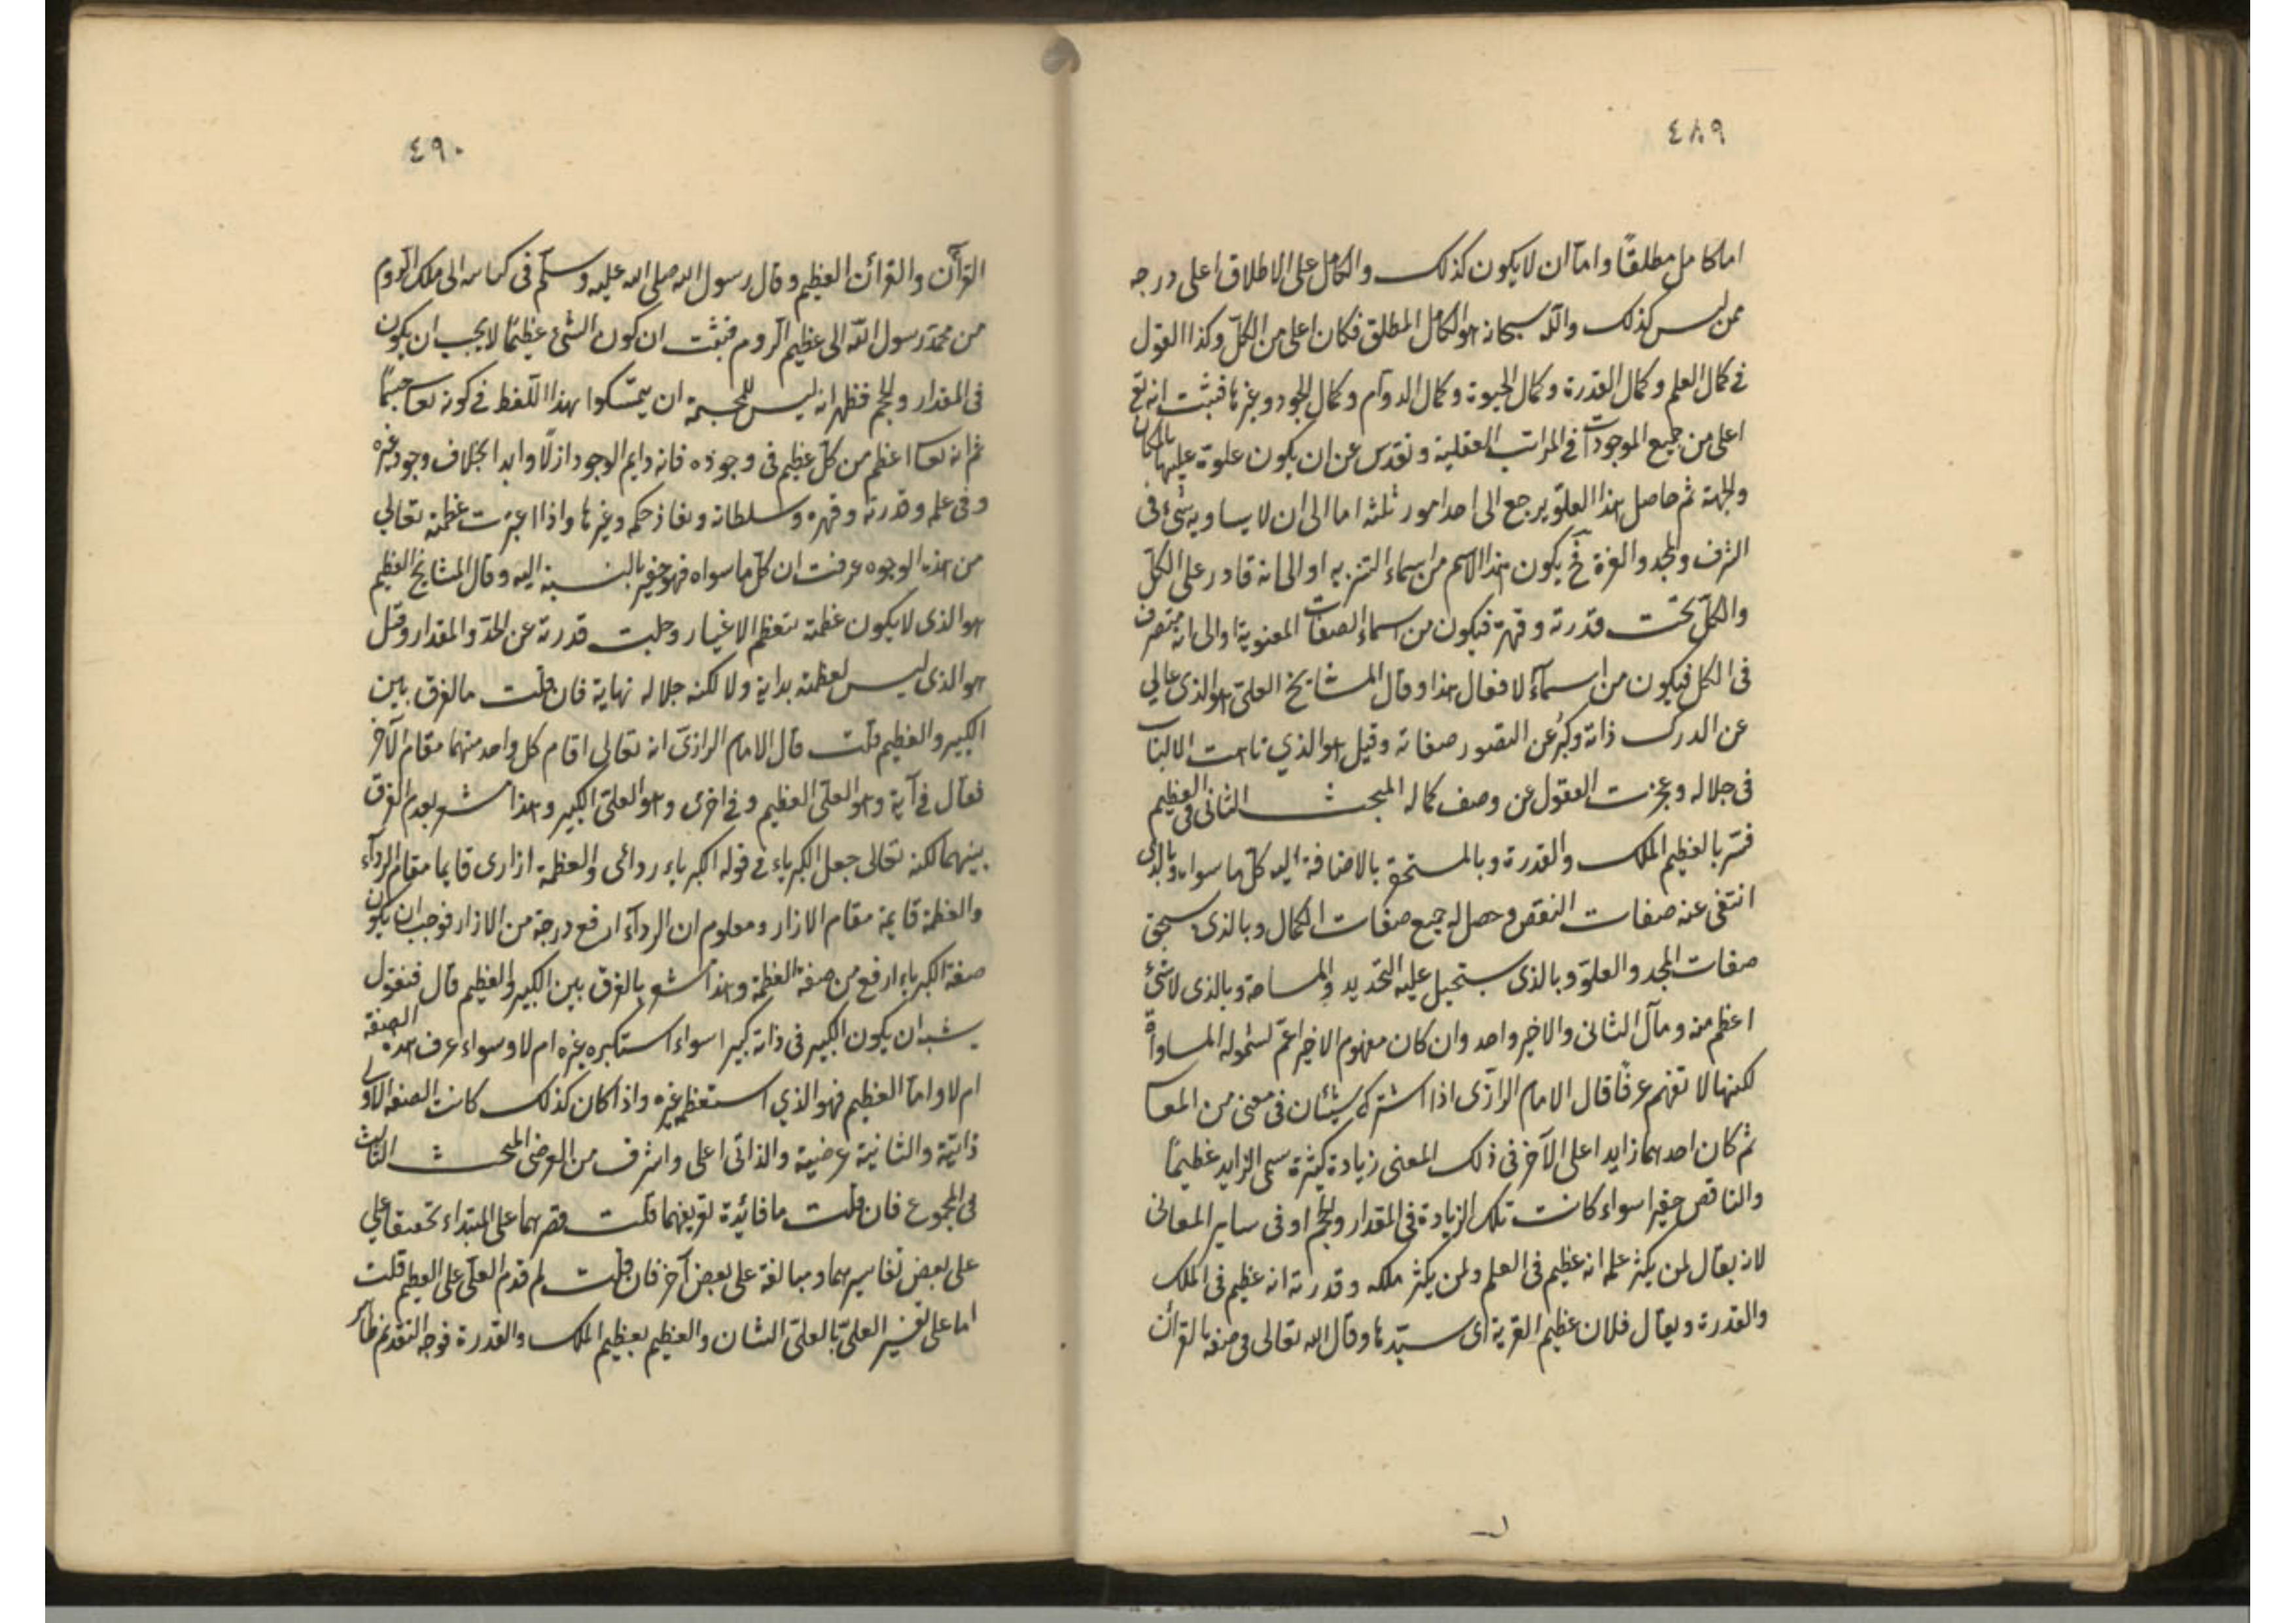 ٤٨٩
اما كامل مطلقًا واما ان لا يكون كذلك والكامل على الاطلاق اعلى درجه
ممن ليس كذلك والله سبحانه هو الكامل المطلق فكان اعلى من الكل وكذا القول
فى كمال العلم وكمال القدرة وكمال الحيوة وكمال الدوام وكمال الجود وغيرها فثبت انه تع
اعلى من جميع الموجودات فى المراتب العقلية وتقدس عن ان يكون علوه عليها بالمكان
والجهة ثم حاصل هذا العلو يرجع الى احد امور ثلثه اما الى ان لا يساويه شئ فى
الشرف والمجد والعزة فح يكون هذا الاسم من اسماء التنزيه او الى انه قادر على الكل
والكل تحت قدرته وقهره فيكون من اسماء الصفات المعنوية او الى انه متصرف
فى الكل فيكون من اسماء الافعال هذا وقال المشايخ العلى هو الذى عالي
عن الدرك ذاته وكبر عن التصور صفاته وقيل هو الذي تاهت الالباب
فى جلاله وعجزت العقول عن وصف كماله المبحث الثانى فى العظيم
فسّر بالعظيم الملك والقدرة وبالمستحق بالاضافة اليه كل ما سواه وبالذى
انتفى عنه صفات النقص وحصل له جميع صفات الكمال وبالذى يستحق
صفات المجد والعلو وبالذى يستحيل عليه التحديد والمساحة وبالذى لا شئ
اعظم منه ومآل الثانى والاخير واحد وان كان مفهوم الاخير اعم لشموله المساواة
لكنها لا تفهم عرفًا قال الامام الرازى اذا اشترك شيئان فى معنى من المعا
ثم كان احدهما زايدا على الآخر فى ذلك المعنى زيادة كثيرة سمى الزايد عظيمًا
والناقص حقيرا سواء كانت تلك الزيادة فى المقدار والحجم او فى ساير المعانى
لانه يقال لمن يكثر علمه انه عظيم فى العلم ولمن يكثر ملكه وقدرته انه عظيم فى الملك
والقدرة ويقال فلان عظيم القرية اى سيدها وقال الله تعالى فى صفة القرآن
٤٩٠
القرآن والقرائن العظيم وقال رسول الله صلى الله عليه وسلم فى كتابه الى ملك الروم
من محمد رسول الله الى عظيم الروم فثبت ان كون الشئ عظيمًا لا يجب ان يكون
فى المقدار والحجم فظهر انه ليس للمجسمة ان يتمسكوا بهذا اللفظ فى كونه تعا جسمًا
ثم انه تعا اعظم من كل عظيم فى وجوده فانه دايم الوجود ازلًا وابدا بخلاف وجود غيره
وفى علمه وقدرته وقهره وسلطانه ونفاذ حكمه وغيرها واذا اعتبرت عظمته تعالى
من هذه الوجوه عرفت ان كل ما سواه فهو حقير بالنسبة اليه وقال المشايخ العظيم
هو الذى لا يكون عظمته بتعظم الاغيار وجلت قدرته عن الحد والمقدار وقيل
هو الذى ليس لعظمته بداية ولا لكنه جلاله نهاية فان قلت مالفرق بين
الكبير والعظيم قلت قال الامام الرازى انه تعالى اقام كل واحد منهما مقام الآخر
فقال فى آية وهو العلى العظيم وفى اخرى وهو العلى الكبير وهذا مشعر بعدم الفرق
بينهما لكنه تعالى جعل الكبرياء فى قوله الكبرياء ردائى والعظمة ازارى قايما مقام الرداء
والعظمة قايمة مقام الازار ومعلوم ان الرداء ارفع درجة من الازار فوجب ان يكون
صفة الكبرياء ارفع من صفة العظمة وهذا مشعر بالفرق بين الكبير والعظيم قال فنقول
يشبه ان يكون الكبير فى ذاته كبيرا سواء استكبره غيره ام لا وسواء عرف هذه الصفة
ام لا واما العظيم فهو الذي استعظمه غيره واذا كان كذلك كانت الصفة الاولى
ذاتية والثانية عرضية والذاتى اعلى واشرف من العرضى المبحث الثالث
فى المجموع فان قلت ما فائدة تعريفهما قلت قصرهما على المبتداء تحقيقا على
على بعض تفاسيرهما ومبالغة على بعض آخر فان قلت لم قدم العلى على العظيم قلت
اما على تفسير العلى بالعلى الشان والعظيم بعظيم الملك والقدرة فوجه التقديم ظاهر